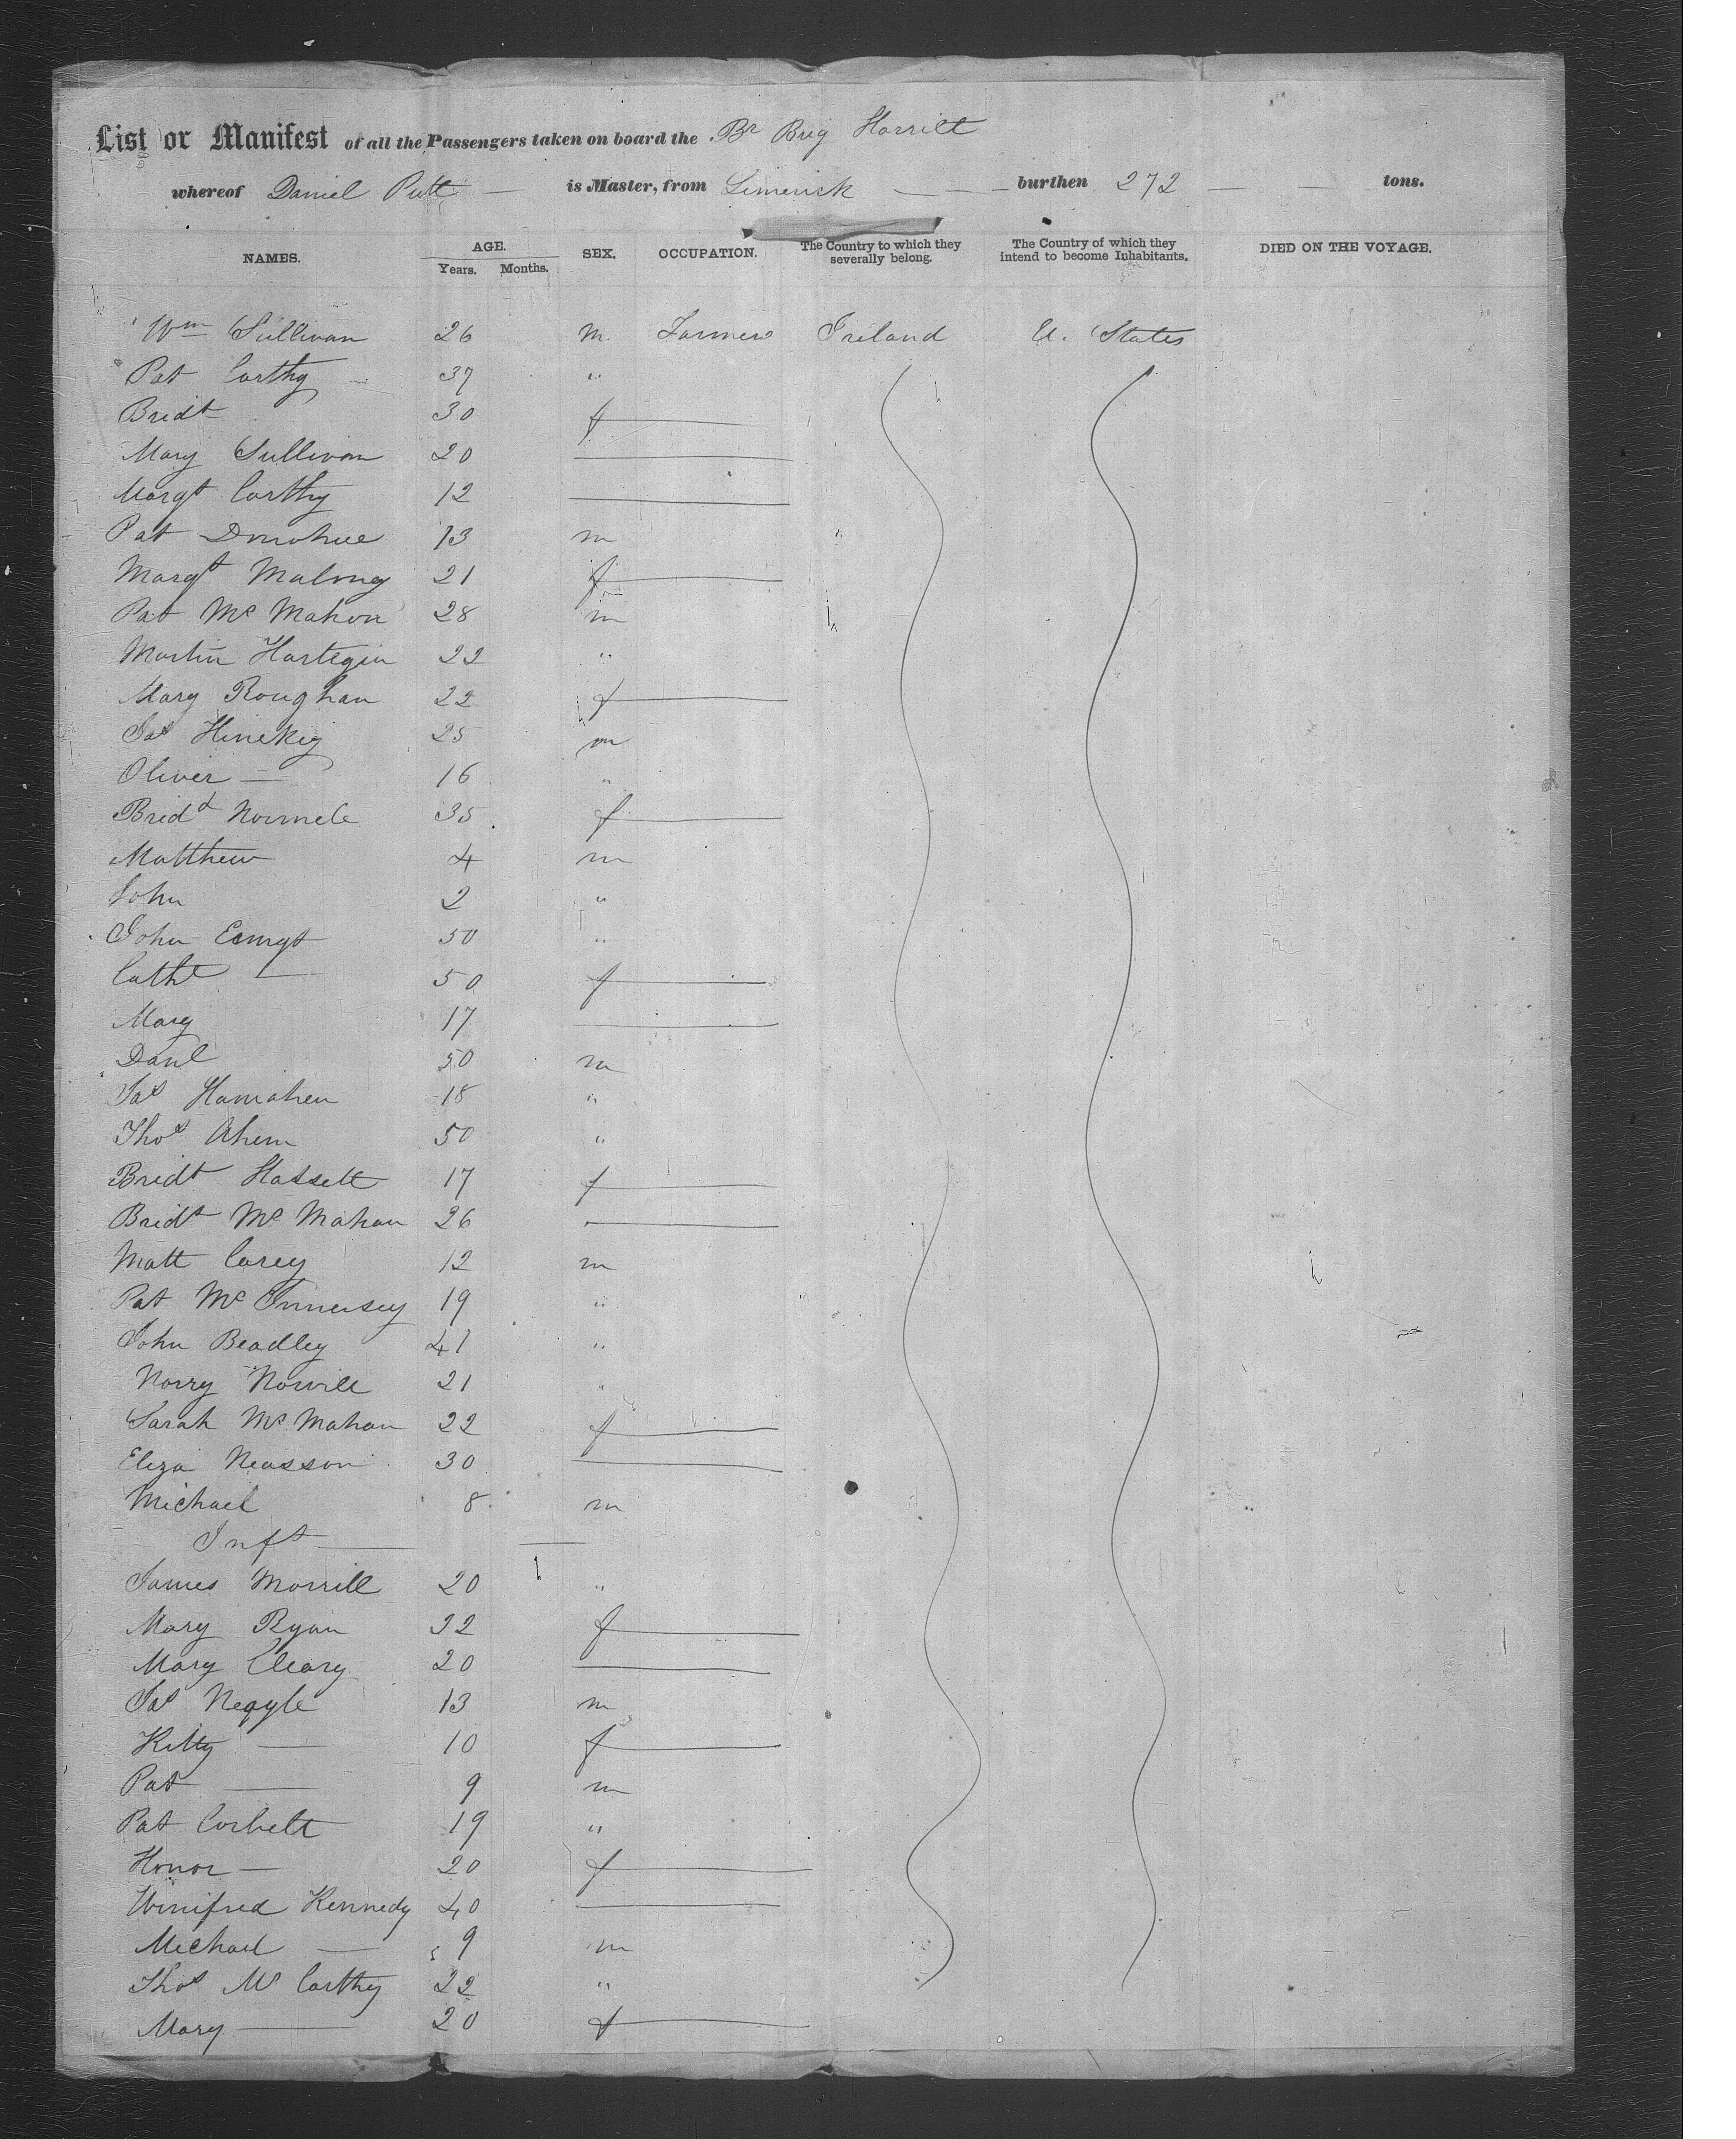 List or Manifest of all the Passengers taken on board the Br Brig Harriet
whereof Daniel Putt is Master, from Limerick burthen 272 tons.
NAMES. AGE. SEX. OCCUPATION. The Country to which they severally belong. The Country of which they intend to become Inhabitants. DIED ON THE VOYAGE.
Years. Months.
Wm Sullivan 26 m. Farmers Ireland U. States
Pat Carthy 37 "
Bridt 30 f
Mary Sullivan 20
Margt Carthy 12
Pat Donohue 13 m
Margt Malony 21 f
Pat Mc Mahon 28 m
Martin Hartigin 22 "
Mary Roughan 22 f
Jas 25 m
Oliver 16 "
Bridt Normele 35 f
Matthew 4 m
John 2 "
John 50 "
Cathe 50 f
Mary 17
Danl 50 m
Jas Hamahen 18 "
Thos Ahern 50 "
Bridt Hassett 17 f
Bridt Mc Mahon 26
Matt Carey 12 m
Pat Mc 19 "
John Beadley 41 "
Norry 21 "
Sarah Mc Mahon 22 f
Eliza Neasson 30
Michael 8 m
Inft
James Morrill 20 "
Mary Ryan 22 f
Mary Cleary 20
Jas Neagyle 13 m
Kitty 10 f
Pat 9 m
Pat Corbett 19 "
Honor 20 f
Winifred Kennedy 40
Michael 9 m
Thos Mc Carthy 22 "
Mary 20 f